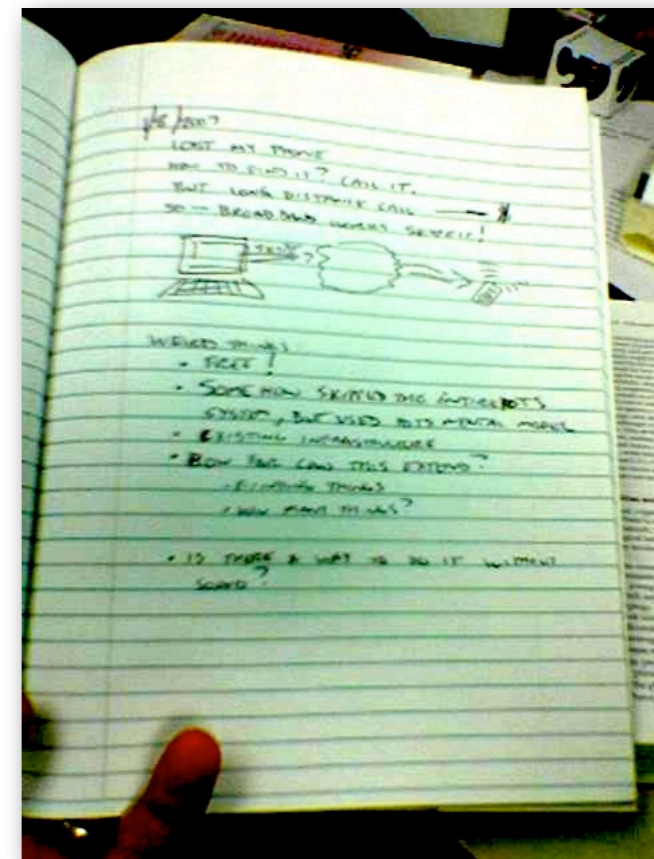 1/18/2007
LOST MY PHONE
HOW TO FIND IT? CALL IT.
BUT LONG DISTANCE CALL
SO — BROADBAND WORKS SKYPE!
SKYPE?
WEIRD THINGS:
• FREE!
• SOMEHOW SKIPPED THE ENTIRE POTS
SYSTEM, BUT USED POTS MENTAL MODEL
• EXISTING INFRASTRUCTURE
• HOW FAR CAN THIS EXTEND?
FINDING THINGS
HOW MANY THINGS?
• IS THERE A WAY TO DO IT WITHOUT
SOUND?